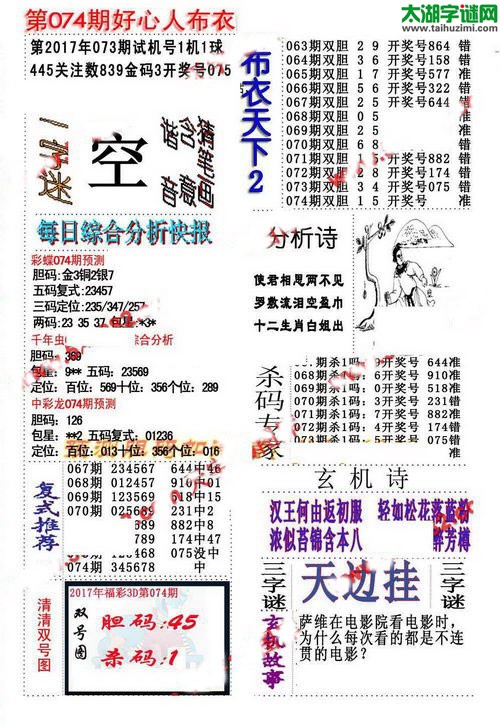 第074期好心人布衣
太湖字谜网
www.taihuzimi.com
第2017年073期试机号1机1球
445关注数839金码3开奖号075
空
每日综合分析快报
彩蝶074期预测
胆码:金3铜2银7
五码复式:23457
三码定位:235/347/257
两码:23 35 37 包星:*3*
综合分析
胆码: 369
包星: 9** 五码: 23569
定位: 百位: 569十位: 356个位: 289
中彩龙074期预测
胆码: 126
包星: **2 五码: 01236
定位: 百位: 013十位: 356个位: 016
复式推荐
067期 234567 644中46
068期 012457 910中01
069期 123590 518中15
231中2
882中88
174中47
075没中
074期 345678
清清双号图
2017年福彩3D第074期
双号图
胆码:45
杀码:1
布衣天下2
063期双胆 2 9 开奖号864 错
064期双胆 3 6 开奖号158 错
065期双胆 4 5 开奖号577 准
066期双胆 5 6 开奖号322 错
067期双胆 2 6 开奖号644 错
068期双胆 0 5
069期双胆 2 5
070期双胆 6 8
071期双胆 1 5 开奖号882 错
072期双胆 2 8 开奖号174 错
073期双胆 3 4 开奖号075 错
074期双胆 1 5
分析诗
使君相思两不见
罗敷流泪空盈巾
十二生肖白姐出
杀码专家
开奖号 644准
068期杀1码: 6开奖号 910准
069期杀1码: 0开奖号 518准
070期杀1码: 5开奖号 231准
071期杀1码: 7开奖号 882准
072期杀1码: 3开奖号 174准
开奖号 075错
玄机诗
汉王何由返初服 轻如松花落蓝粉
浓似苔锦含本八 醉芳樽
三字谜
天边挂
三字谜
玄机故事
萨维在电影院看电影时，
为什么每次看的都是不连
贯的电影？